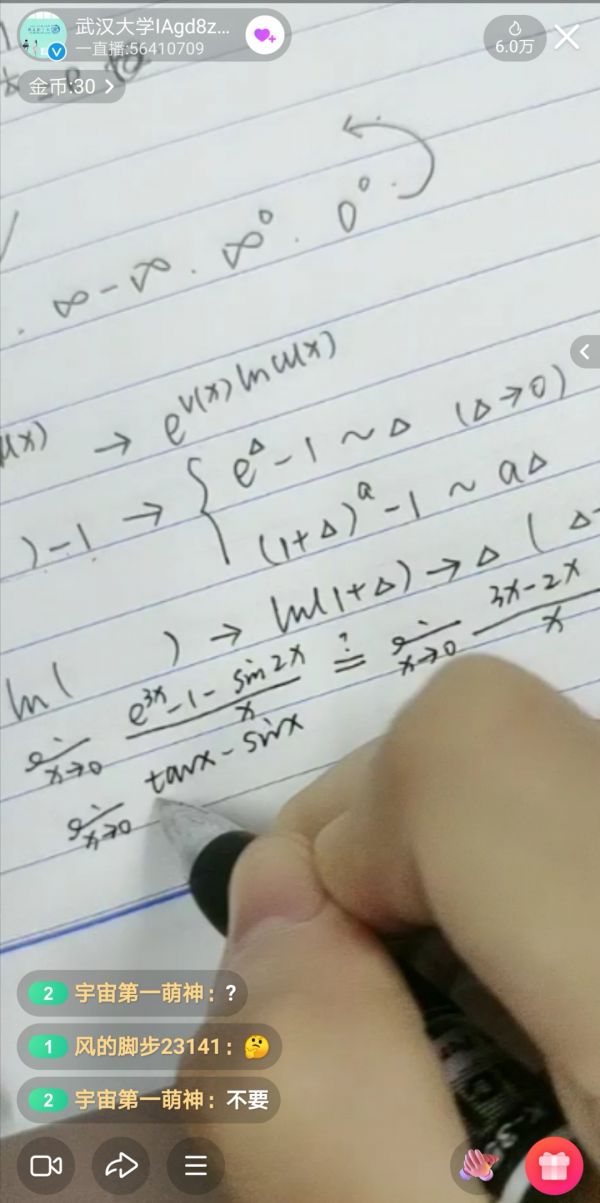 武汉大学IAgd8z...
一直播:56410709
6.0万
金币:30 >
∞-∞. ∞⁰. 0⁰.
u(x) → e^{v(x) ln u(x)}
)-1 → { e^Δ - 1 ~ Δ (Δ→0)
(1+Δ)^a - 1 ~ aΔ
ln( ) → ln(1+Δ) → Δ ( Δ
lim x→0 (e^{3x}-1-sin2x)/x ?= lim x→0 (3x-2x)/x
lim x→0 tanx-sinx
2 宇宙第一萌神：?
1 风的脚步23141：🤔
2 宇宙第一萌神：不要